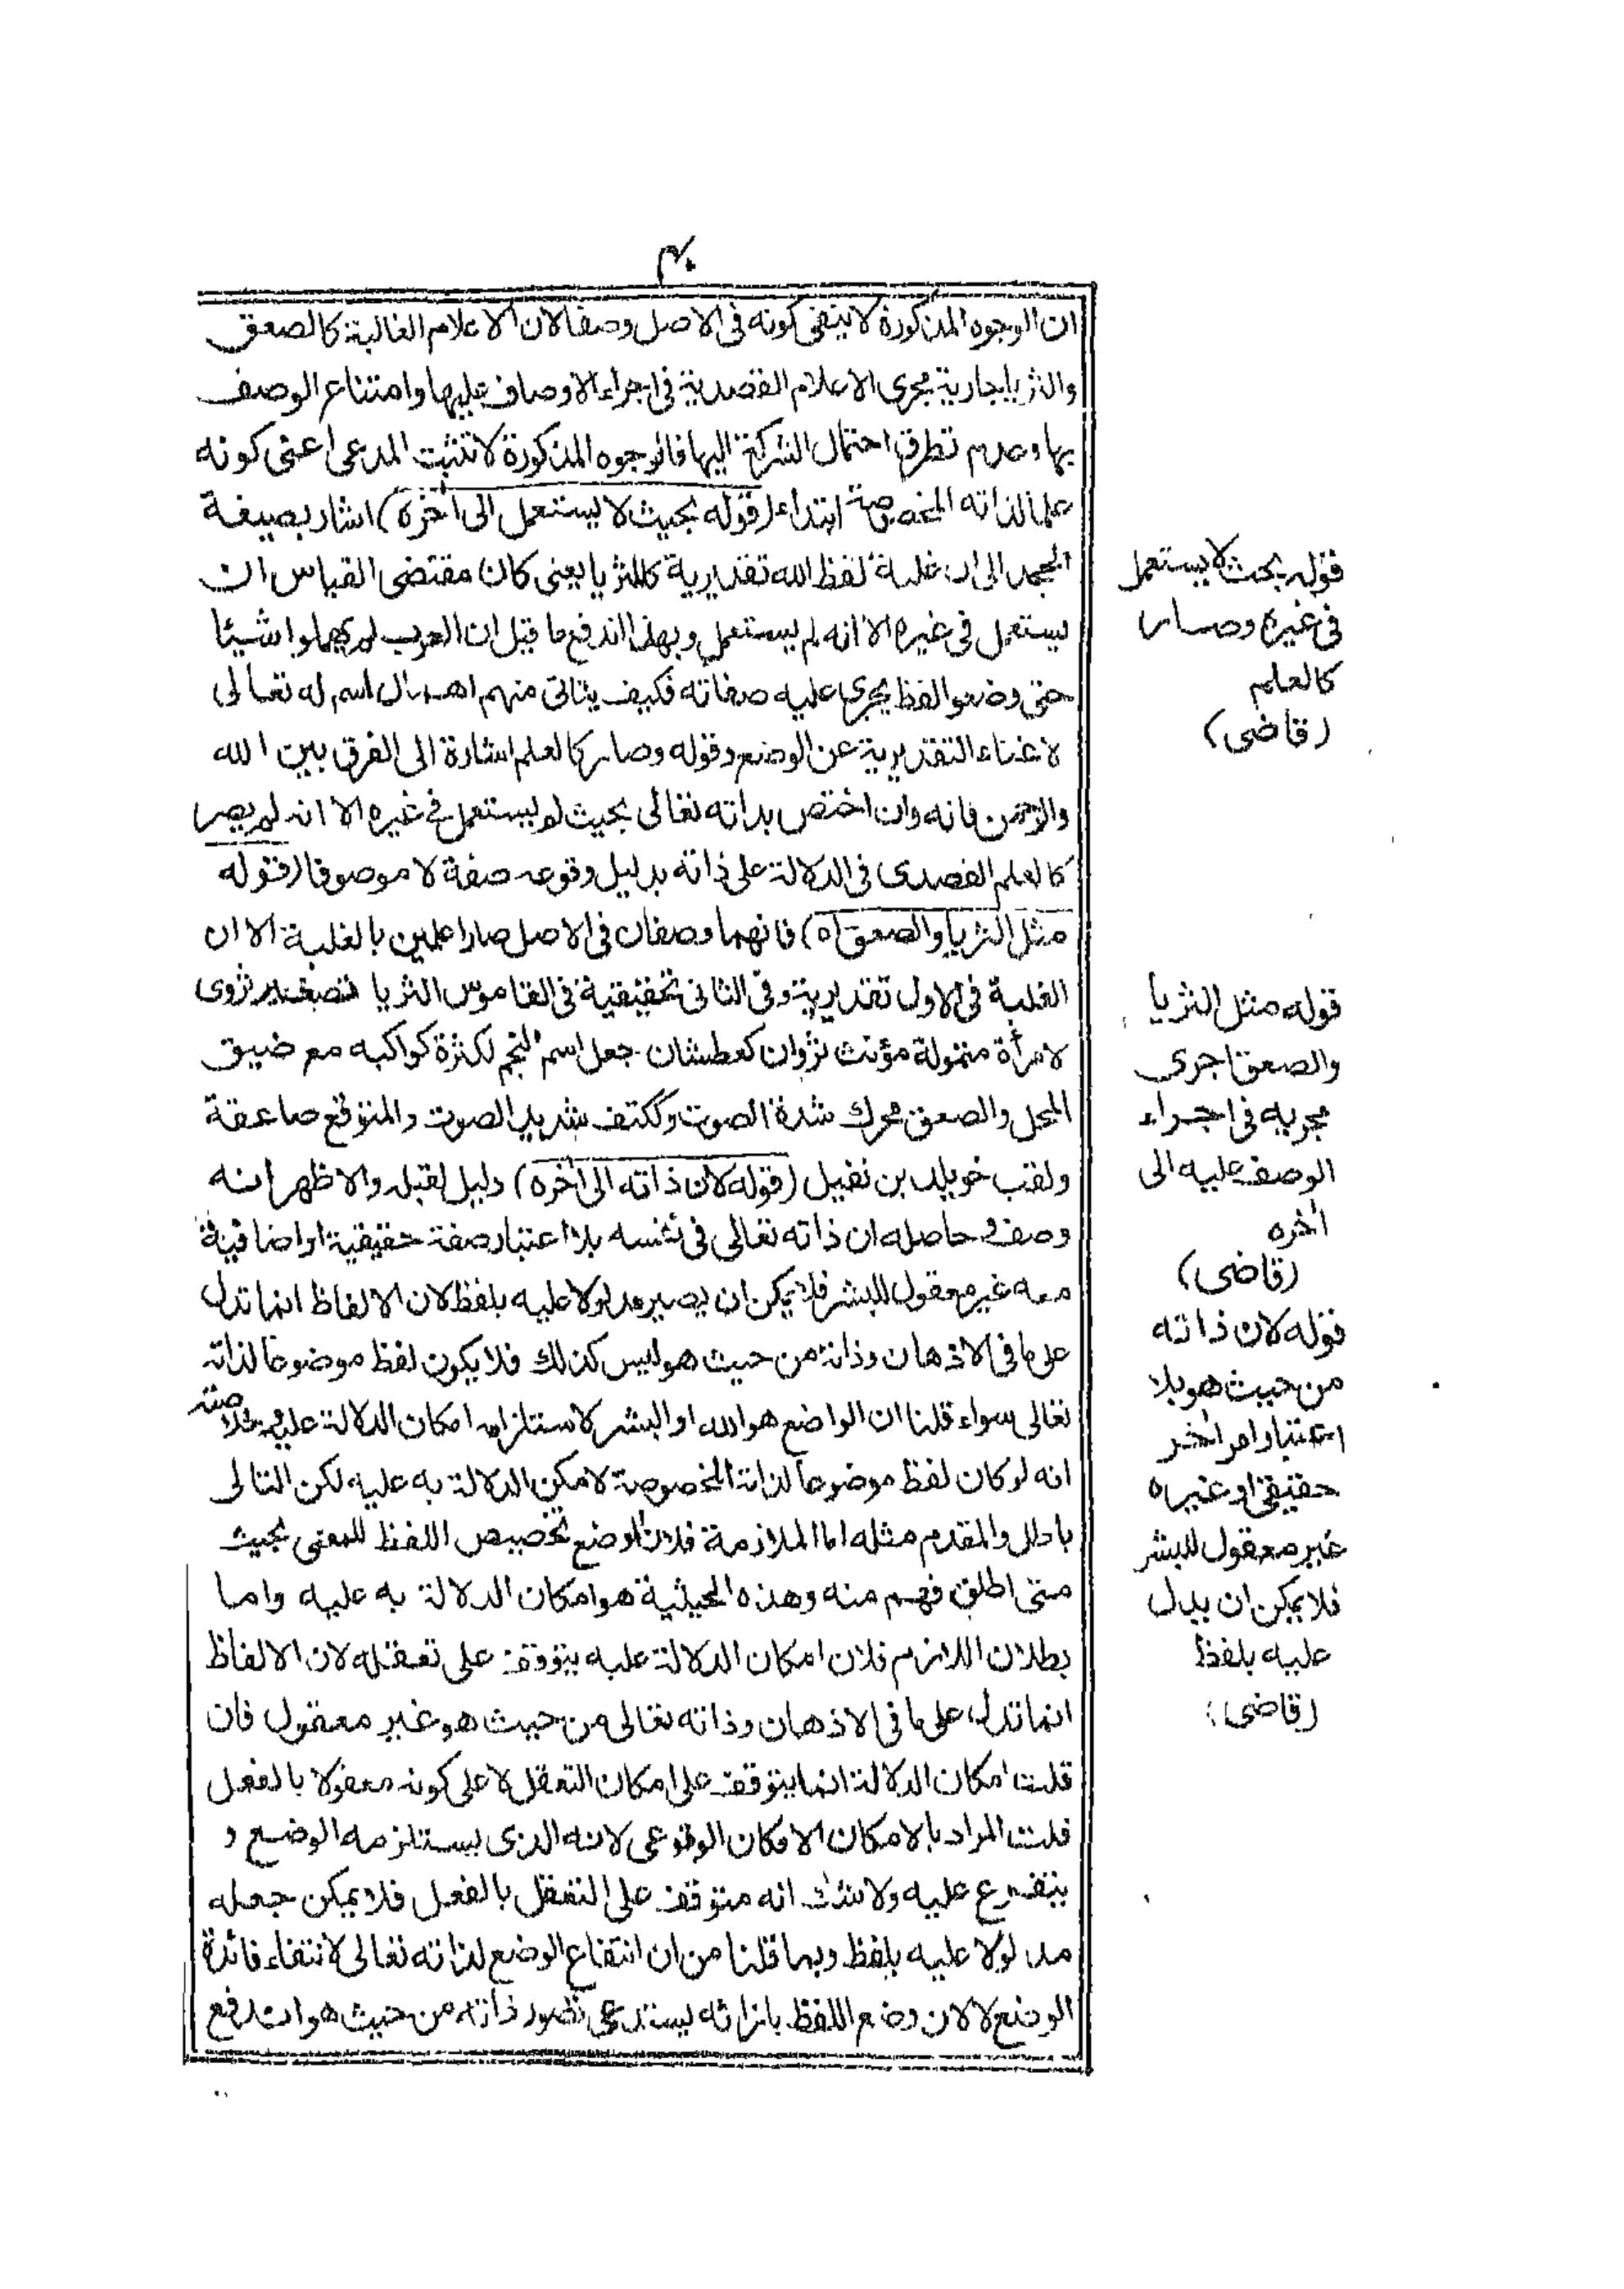 ٣٠
ان الوجوه المذكورة لا ينفى كونه فى الاصل وصفا لان الاعلام الغالبة كالصعق
والثريا جارية مجرى الاعلام القصدية فى اجراء الاوصاف عليها وامتناع الوصف
بها وعدم تطرق احتمال الشركة اليها فالوجوه المذكورة لا تثبت المدعى اعنى كونه
علما لذاته المخصوصة ابتداء (قوله بحيث لا يستعمل الى اٰخره) اشار بصيغة
المجهول الى ان غلبة لفظ الله تقديرية كالثريا يعنى كان مقتضى القياس ان
يستعمل فى غيره الا انه لم يستعمل وبهذا اندفع ما قيل ان العرب لم يهملوا شيئا
حتى وضعوا لفظ يجرى عليه صفاته فكيف يتاتى منهم اهمال اسم له تعالى
لاغناء التقديرية عن الوضع وقوله وصار كالعلم اشارة الى الفرق بين الله
والرحمن فانه وان اختص بذاته تعالى بحيث لم يستعمل فى غيره الا انه لم يصر
كالعلم القصدى فى الدلالة على ذاته بدليل وقوعه صفة لا موصوفا (قوله
مثل الثريا والصعق اه) فانهما وصفان فى الاصل صارا علمين بالغلبة الا ان
الغلبة فى الاول تقديرية وفى الثانى تحقيقية فى القاموس الثريا تصغير ثروى
لامرأة متمولة مؤنث ثروان كعطشان جعل اسم النجم لكثرة كواكبه مع ضيق
المحل والصعق محرك شدة الصوت وككتف شديد الصوت والمتوقع صاعقة
ولقب خويلد بن نفيل (قوله لان ذاته الى اٰخره) دليل لقبل والاظهر انه
وصف وحاصله ان ذاته تعالى فى نفسه بلا اعتبار صفة حقيقية او اضافية
معه غير معقول للبشر فلا يمكن ان يصير مدلولا عليه بلفظ لان الالفاظ انما تدل
على ما فى الاذهان وذاته من حيث هو ليس كذلك فلا يكون لفظ موضوعا لذاته
تعالى سواء قلنا ان الواضع هو الله او البشر لاستلزامه امكان الدلالة عليه
انه لو كان لفظ موضوعا لذاته المخصوصة لامكن الدلالة به عليه لكن التالى
باطل والمقدم مثله اما الملازمة فلان الوضع تخصيص اللفظ للمعنى بحيث
متى اطلق فهم منه وهذه الحيثية هو امكان الدلالة به عليه واما
بطلان اللازم فلان امكان الدلالة عليه يتوقف على تعقله لان الالفاظ
انما تدل على ما فى الاذهان وذاته تعالى من حيث هو غير معقول فان
قلت امكان الدلالة انما يتوقف على امكان التعقل لا على كونه معقولا بالفعل
قلت المراد بالامكان الامكان الوقوعى لانه الذى يستلزمه الوضع و
يتفرع عليه ولا شك انه متوقف على التعقل بالفعل فلا يمكن جعله
مدلولا عليه بلفظ وبما قلنا من ان انتفاع الوضع لذاته تعالى لانتفاء فائدة
الوضع لا لان وضع اللفظ بازائه يستدعى تصور ذاته من حيث هو اندفع
قوله بحيث لا يستعمل
فى غيره وصار
كالعلم
(قاضى)
قوله مثل الثريا
والصعق اجرى
مجريه فى اجراء
الوصف عليه الى
اٰخره
(قاضى)
قوله لان ذاته
من حيث هو بلا
اعتبار امر اٰخر
حقيقى او غيره
غير معقول للبشر
فلا يمكن ان يدل
عليه بلفظ
(قاضى)